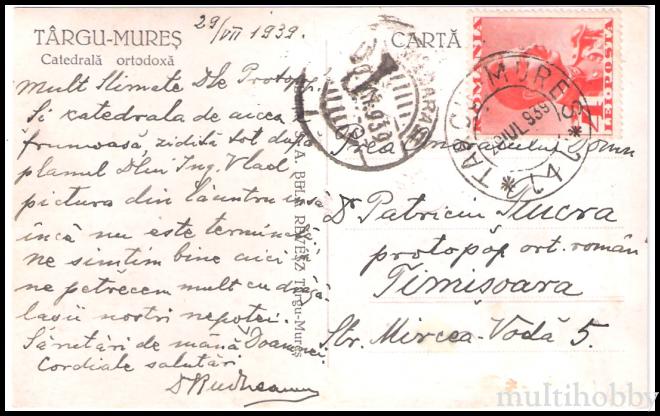 29/VII 1939.
TÂRGU-MUREȘ
Catedrală ortodoxă
CARTĂ
Mult Stimate Dle Protopop.
Și catedrala de aicea
frumoasă, zidită tot după
planul Dlui Ing. Vlad,
pictura din lăuntru însă
încă nu este terminată
ne simțim bine aici
ne petrecem mult cu dragă
lașii noștri nepoței.
Sărutări de mână Doamnei.
Cordiale salutări
A. BELA REVESZ Târgu-Mureș
Prea Onoratului Domn
Dr. Patriciu Țiucra
protopop ort. român
Timișoara
Str. Mircea-Vodă 5.
ROMANIA
4 LEI POSTA
TARGU MURES
28 IUL 939
* 4 L *
multihobby